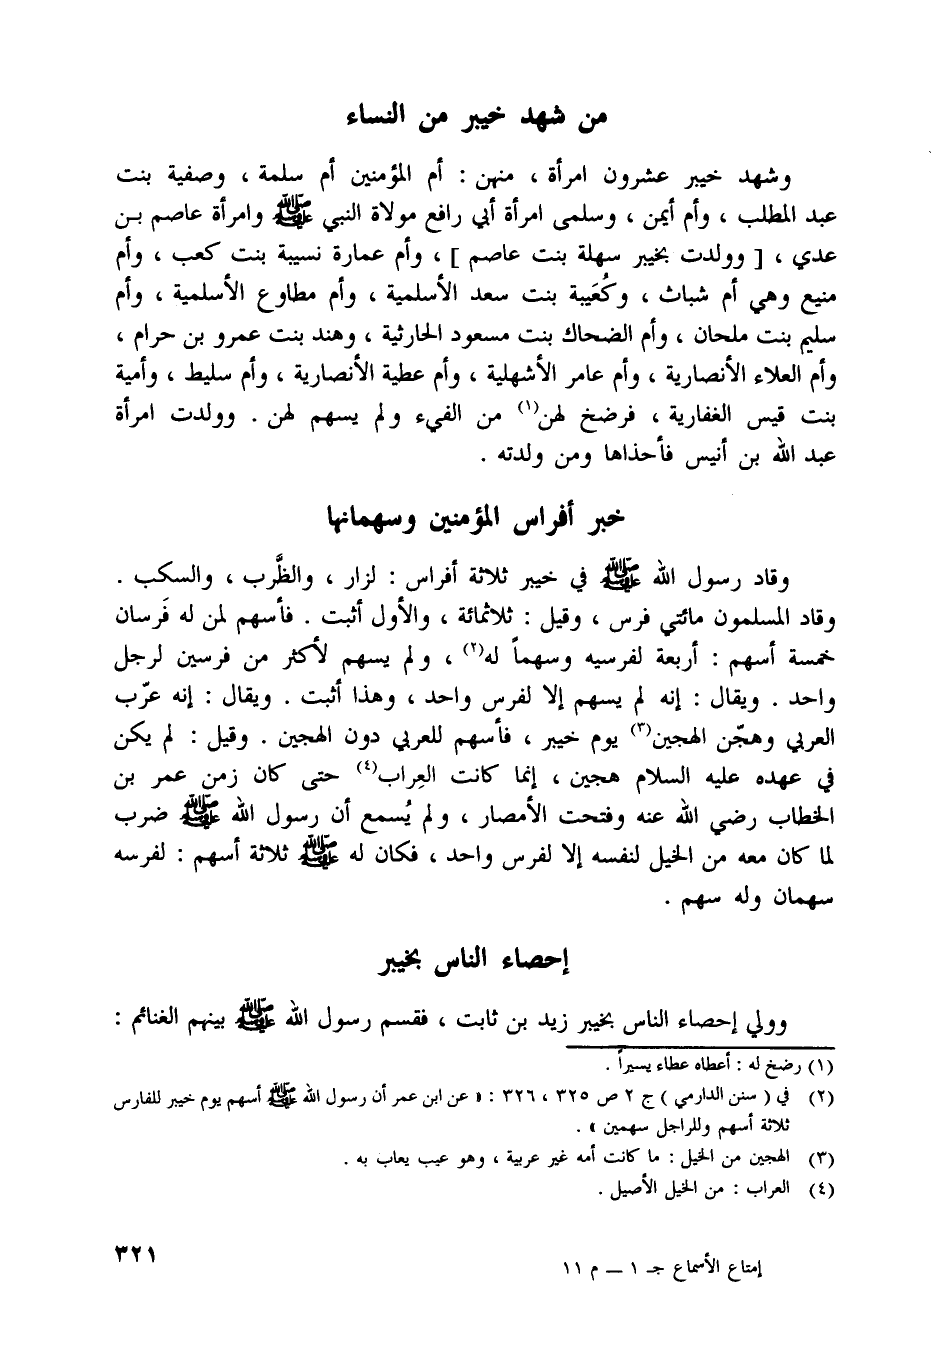 من شهد خيبر من النساء
وشهد خيبر عشرون امرأة ، منهن : أم المؤمنين أم سلمة ، وصفية بنت
عبد المطلب ، وأم أيمن ، وسلمى امرأة أبي رافع مولاة النبي ﷺ وامرأة عاصم بـن
عدي ، [ وولدت بخيبر سهلة بنت عاصم ] ، وأم عمارة نسيبة بنت كعب ، وأم
منيع وهي أم شباث ، وكُعَيبة بنت سعد الأسلمية ، وأم مطاوع الأسلمية ، وأم
سليم بنت ملحان ، وأم الضحاك بنت مسعود الحارثية ، وهند بنت عمرو بن حرام ،
وأم العلاء الأنصارية ، وأم عامر الأشهلية ، وأم عطية الأنصارية ، وأم سليط ، وأمية
بنت قيس الغفارية ، فرضخ لهن(١) من الفيء ولم يسهم لهن . وولدت امرأة
عبد الله بن أنيس فأحذاها ومن ولدته .
خبر أفراس المؤمنين وسهمانها
وقاد رسول الله ﷺ في خيبر ثلاثة أفراس : لزار ، والظَّرب ، والسكب .
وقاد المسلمون مائتي فرس ، وقيل : ثلاثمائة ، والأول أثبت . فأسهم لمن له فَرسان
خمسة أسهم : أربعة لفرسيه وسهماً له(٢) ، ولم يسهم لأكثر من فرسين لرجل
واحد . ويقال : إنه لم يسهم إلا لفرس واحد ، وهذا أثبت . ويقال : إنه عرّب
العربي وهجّن الهجين(٣) يوم خيبر ، فأسهم للعربي دون الهجين . وقيل : لم يكن
في عهده عليه السلام هجين ، إنما كانت العِراب(٤) حتى كان زمن عمر بن
الخطاب رضي الله عنه وفتحت الأمصار ، ولم يُسمع أن رسول الله ﷺ ضرب
لما كان معه من الخيل لنفسه إلا لفرس واحد ، فكان له ﷺ ثلاثة أسهم : لفرسه
سهمان وله سهم .
إحصاء الناس بخيبر
وولي إحصاء الناس بخيبر زيد بن ثابت ، فقسم رسول الله ﷺ بينهم الغنائم :
(١) رضخ له : أعطاه عطاء يسيراً .
(٢) في ( سنن الدارمي ) ج ٢ ص ٣٢٥ ، ٣٢٦ : « عن ابن عمر أن رسول الله ﷺ أسهم يوم خيبر للفارس
ثلاثة أسهم وللراجل سهمين » .
(٣) الهجين من الخيل : ما كانت أمه غير عربية ، وهو عيب يعاب به .
(٤) العراب : من الخيل الأصيل .
٣٢١
إمتاع الأسماع جـ ١ ــ م ١١